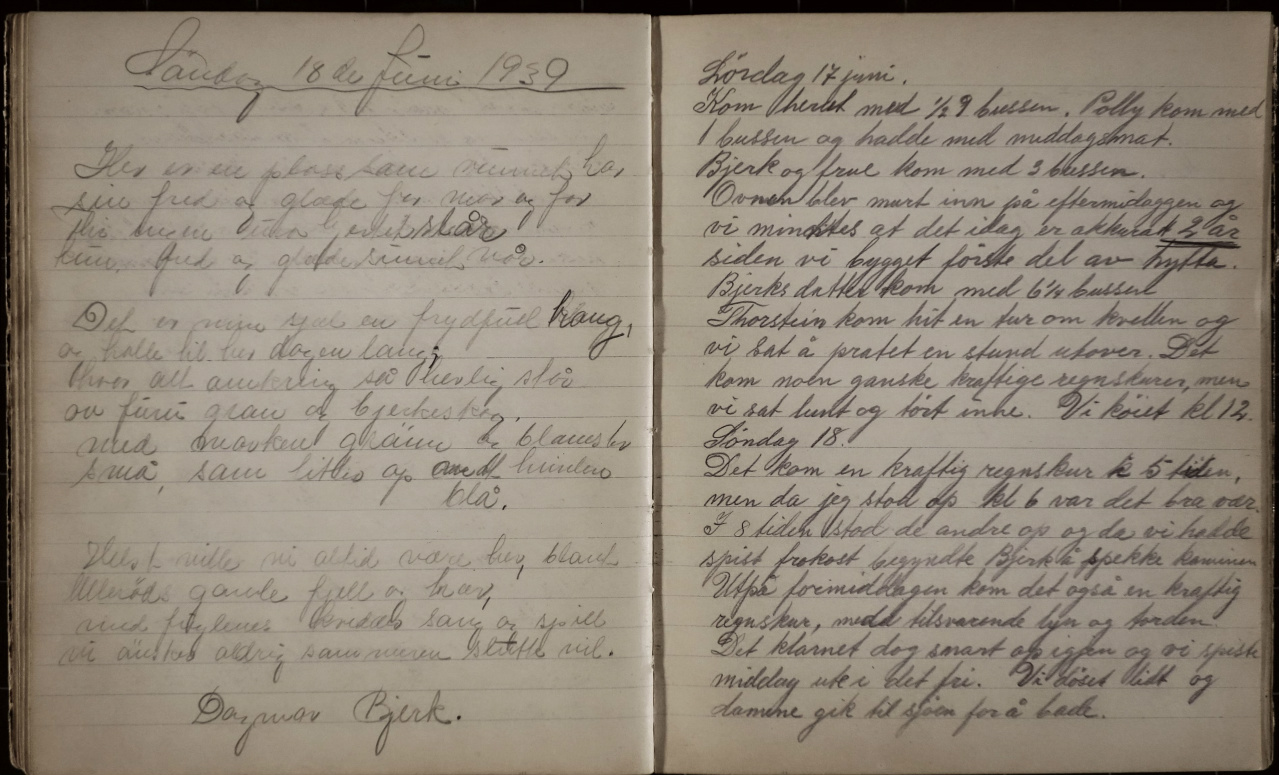 Søndag 18de Juni 1939
Her er en plass som rummet har
sin fred og glæde for mor og far
thi ingen står
fred og glæde
Det er min sjæl en frydfull trang,
og holde til her dagen lang,
hvor alt omkring så herlig står
av furu gran og bjerkeskog,
med marken grønn og blomster
små, som titter op mot himlen
blå.
Helst ville vi altid være her, blant
Ulleröds gamle fjell og trær,
med fuglenes kvidder sang og spill
vi ønsker aldrig sommeren slutte vil.
Dagmar Bjerk.
Lördag 17 juni.
Kom herut med 1/2 9 bussen. Polly kom med
1 bussen og hadde med middagsmat.
Bjerk og frue kom med 3 bussen.
Ovnen blev murt inn på eftermidaggen og
vi minntes at det idag er akkurat 2 år
siden vi bygget förste del av hytta.
Bjerks datter kom med 6 1/4 bussen
Thorstein kom hit en tur om kvellen og
vi sat å pratet en stund utover. Det
kom noen ganske kraftige regnskurer, men
vi sat lunt og tört inne. Vi köiet kl 12.
Söndag 18.
Det kom en kraftig regnskur k 5 tiden,
men da jeg stod op kl 6 var det bra vær.
I 8 tiden stod de andre op og da vi hadde
spist frokost begyndte Bjerk å spekke kaminen
Utpå formiddagen kom det også en kraftig
regnskur, med tilsvarende lyn og torden.
Det klarnet dog snart op igjen og vi spiste
middag ute i det fri. Vi döset lidt og
damene gik til sjöen for å bade.